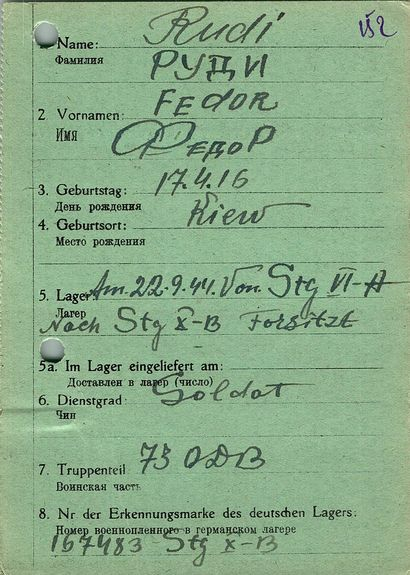 Rudi
152
1. Name:
Фамилия
РУДИ
FEDOR
2 Vornamen:
Имя
ФЕДОР
3. Geburtstag: 17.4.16
День рождения
Kiew
4. Geburtsort:
Место рождения
Am. 22.9.44. Von Stg VI-A
5. Lager
Лагер
Nach Stg X-B Forsitzt
5a. Im Lager eingeliefert am:
Доставлен в лагер (число)
6. Dienstgrad: Soldat
Чин
7. Truppenteil 73 ОДВ
Воинская часть
8. Nr der Erkennungsmarke des deutschen Lagers:
Номер военнопленного в германском лагере
167483 Stg X-B